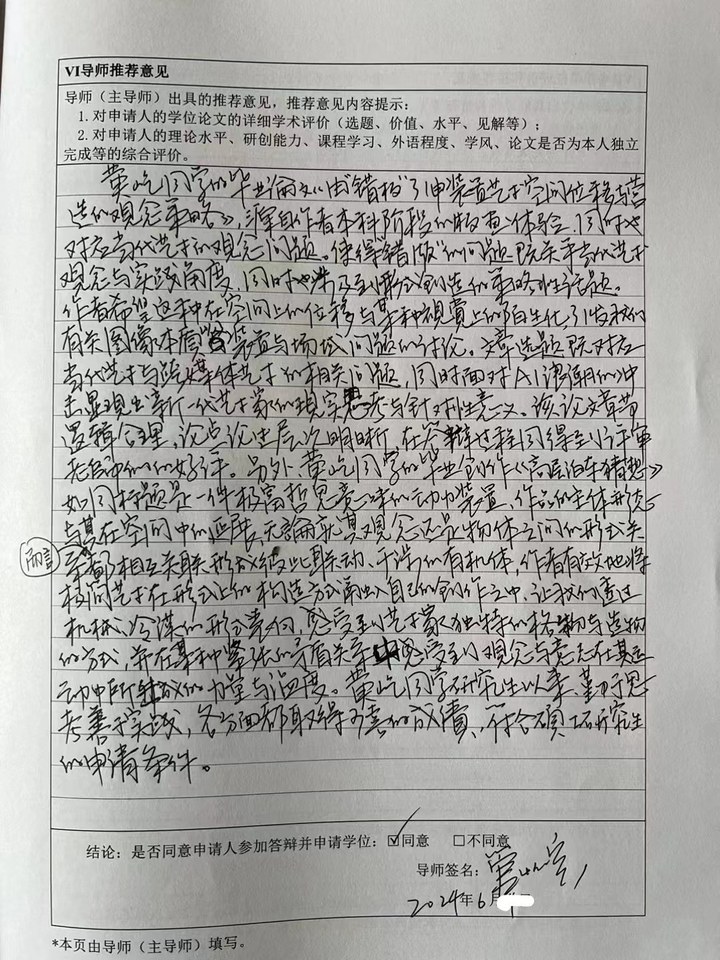 VI导师推荐意见
导师（主导师）出具的推荐意见，推荐意见内容提示：
1. 对申请人的学位论文的详细学术评价（选题、价值、水平、见解等）；
2. 对申请人的理论水平、研创能力、课程学习、外语程度、学风、论文是否为本人独立
完成等的综合评价。
同学的毕业论文《由“错版”引申装置艺术空间位移与营
造的观念策略》，源自作者本科阶段的版画体验，同时也
对应当代艺术的观念问题。使得“错版”的问题既关乎当代艺术
观念与实践角度，同时也涉及到形式创造的策略性话题。
作者希望这种在空间上的位移与某种视觉上的陌生化，引发我们
有关图像本质、装置与场域问题的讨论。文章选题既对应
当代艺术与跨媒体艺术的相关问题，同时面对AI浪潮的冲
击显现出新一代艺术家的现实思考与针对性意义。该论文章节
逻辑合理，论点论述层次明晰，在答辩过程同得到评审
老师们的好评。另外同学的毕业创作《高压泊车猜想》
如同标题是一件极富哲思意味的动力装置，作品的主体形态
与其在空间中的延展，无论就其观念还是物体之间的形式关
系而言都相互关联形成彼此联动、干涉的有机体，作者有效地将
极简艺术在形式上的构造方式融入自己的创作之中，让我们透过
机械、冷漠的形式表向，感受到艺术家独特的格物与造物
的方式，并在某种紧张的矛盾关系中感受到观念与意志在其运
动中所生成的力量与温度。同学研究生以来，勤于思
考善于实践，各方面都取得了可喜的成绩，符合硕士研究生
的申请条件。
结论：是否同意申请人参加答辩并申请学位：☑同意 ☐不同意
导师签名：
2024年6月
*本页由导师（主导师）填写。